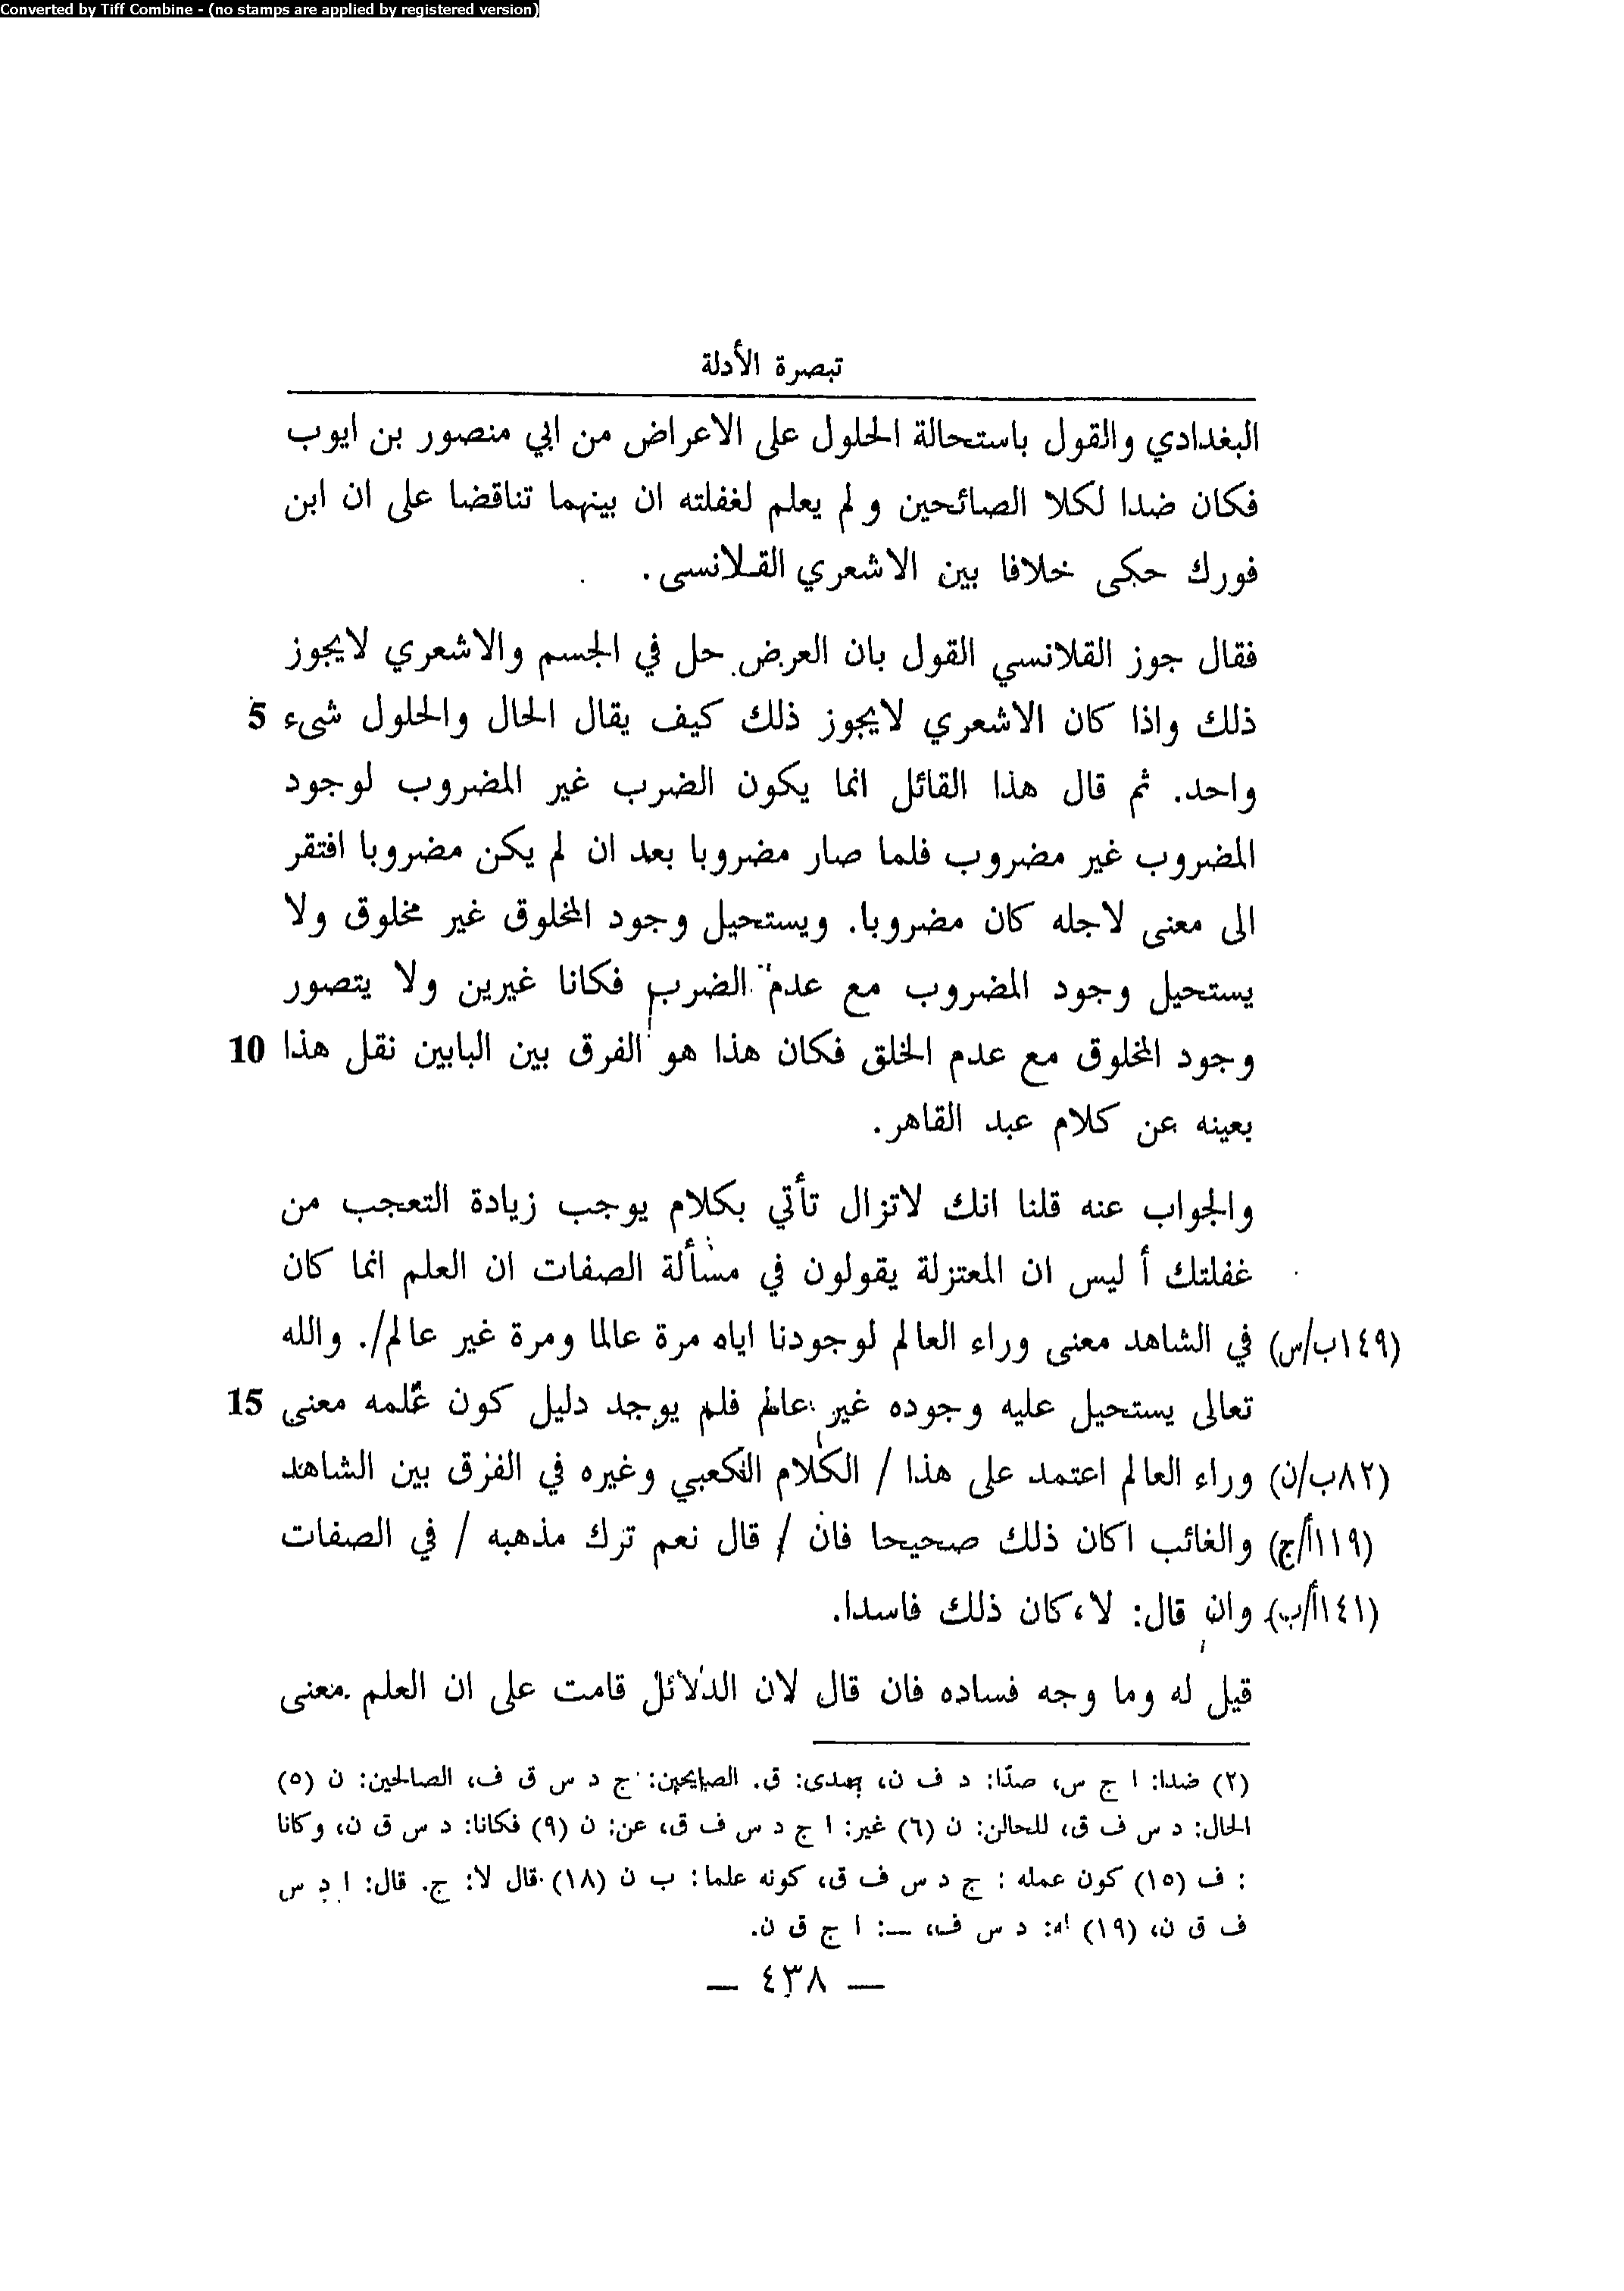 Converted by Tiff Combine - (no stamps are applied by registered version)
تبصرة الأدلة
البغدادي والقول باستحالة الحلول على الاعراض من ابي منصور بن ايوب
فكان ضدا لكلا الصائحين و لم يعلم لغفلته ان بينهما تناقضا على ان ابن
فورك حكى خلافا بين الاشعري القلانسى.
فقال جوز القلانسي القول بان العرض حل في الجسم والاشعري لايجوز
ذلك واذا كان الاشعري لايجوز ذلك كيف يقال الحال والحلول شىء 5
واحد. ثم قال هذا القائل انما يكون الضرب غير المضروب لوجود
المضروب غير مضروب فلما صار مضروبا بعد ان لم يكن مضروبا افتقر
الى معنى لاجله كان مضروبا. ويستحيل وجود المخلوق غير مخلوق ولا
يستحيل وجود المضروب مع عدم الضرب فكانا غيرين ولا يتصور
وجود المخلوق مع عدم الخلق فكان هذا هو الفرق بين البابين نقل هذا 10
بعينه عن كلام عبد القاهر.
والجواب عنه قلنا انك لاتزال تأتي بكلام يوجب زيادة التعجب من
غفلتك أ ليس ان المعتزلة يقولون في مسألة الصفات ان العلم انما كان
(١٤٩ب/س) في الشاهد معنى وراء العالم لوجودنا اياه مرة عالما ومرة غير عالم/. والله
تعالى يستحيل عليه وجوده غير عالم فلم يوجد دليل كون علمه معنى 15
(٨٢ب/ن) وراء العالم اعتمد على هذا / الكلام الكعبي وغيره في الفرق بين الشاهد
(١١٩أ/ج) والغائب اكان ذلك صحيحا فان / قال نعم ترك مذهبه / في الصفات
(١٤١أ/ب) وان قال: لا،كان ذلك فاسدا.
قيل له وما وجه فساده فان قال لان الدلائل قامت على ان العلم معنى
(٢) ضدا: ا ج س، صدّا: د ف ن، بعدى: ق. الصايحين: ج د س ق ف، الصالحين: ن (٥)
الحال: د س ف ق، للحالن: ن (٦) غير: ا ج د س ف ق، عن: ن (٩) فكانا: د س ق ن، وكانا
: ف (١٥) كون عمله : ج د س ف ق، كونه علما: ب ن (١٨) قال لا: ج. قال: ا د س
ف ق ن، (١٩) له: د س ف، —: ا ج ق ن.
— ٤٣٨ —